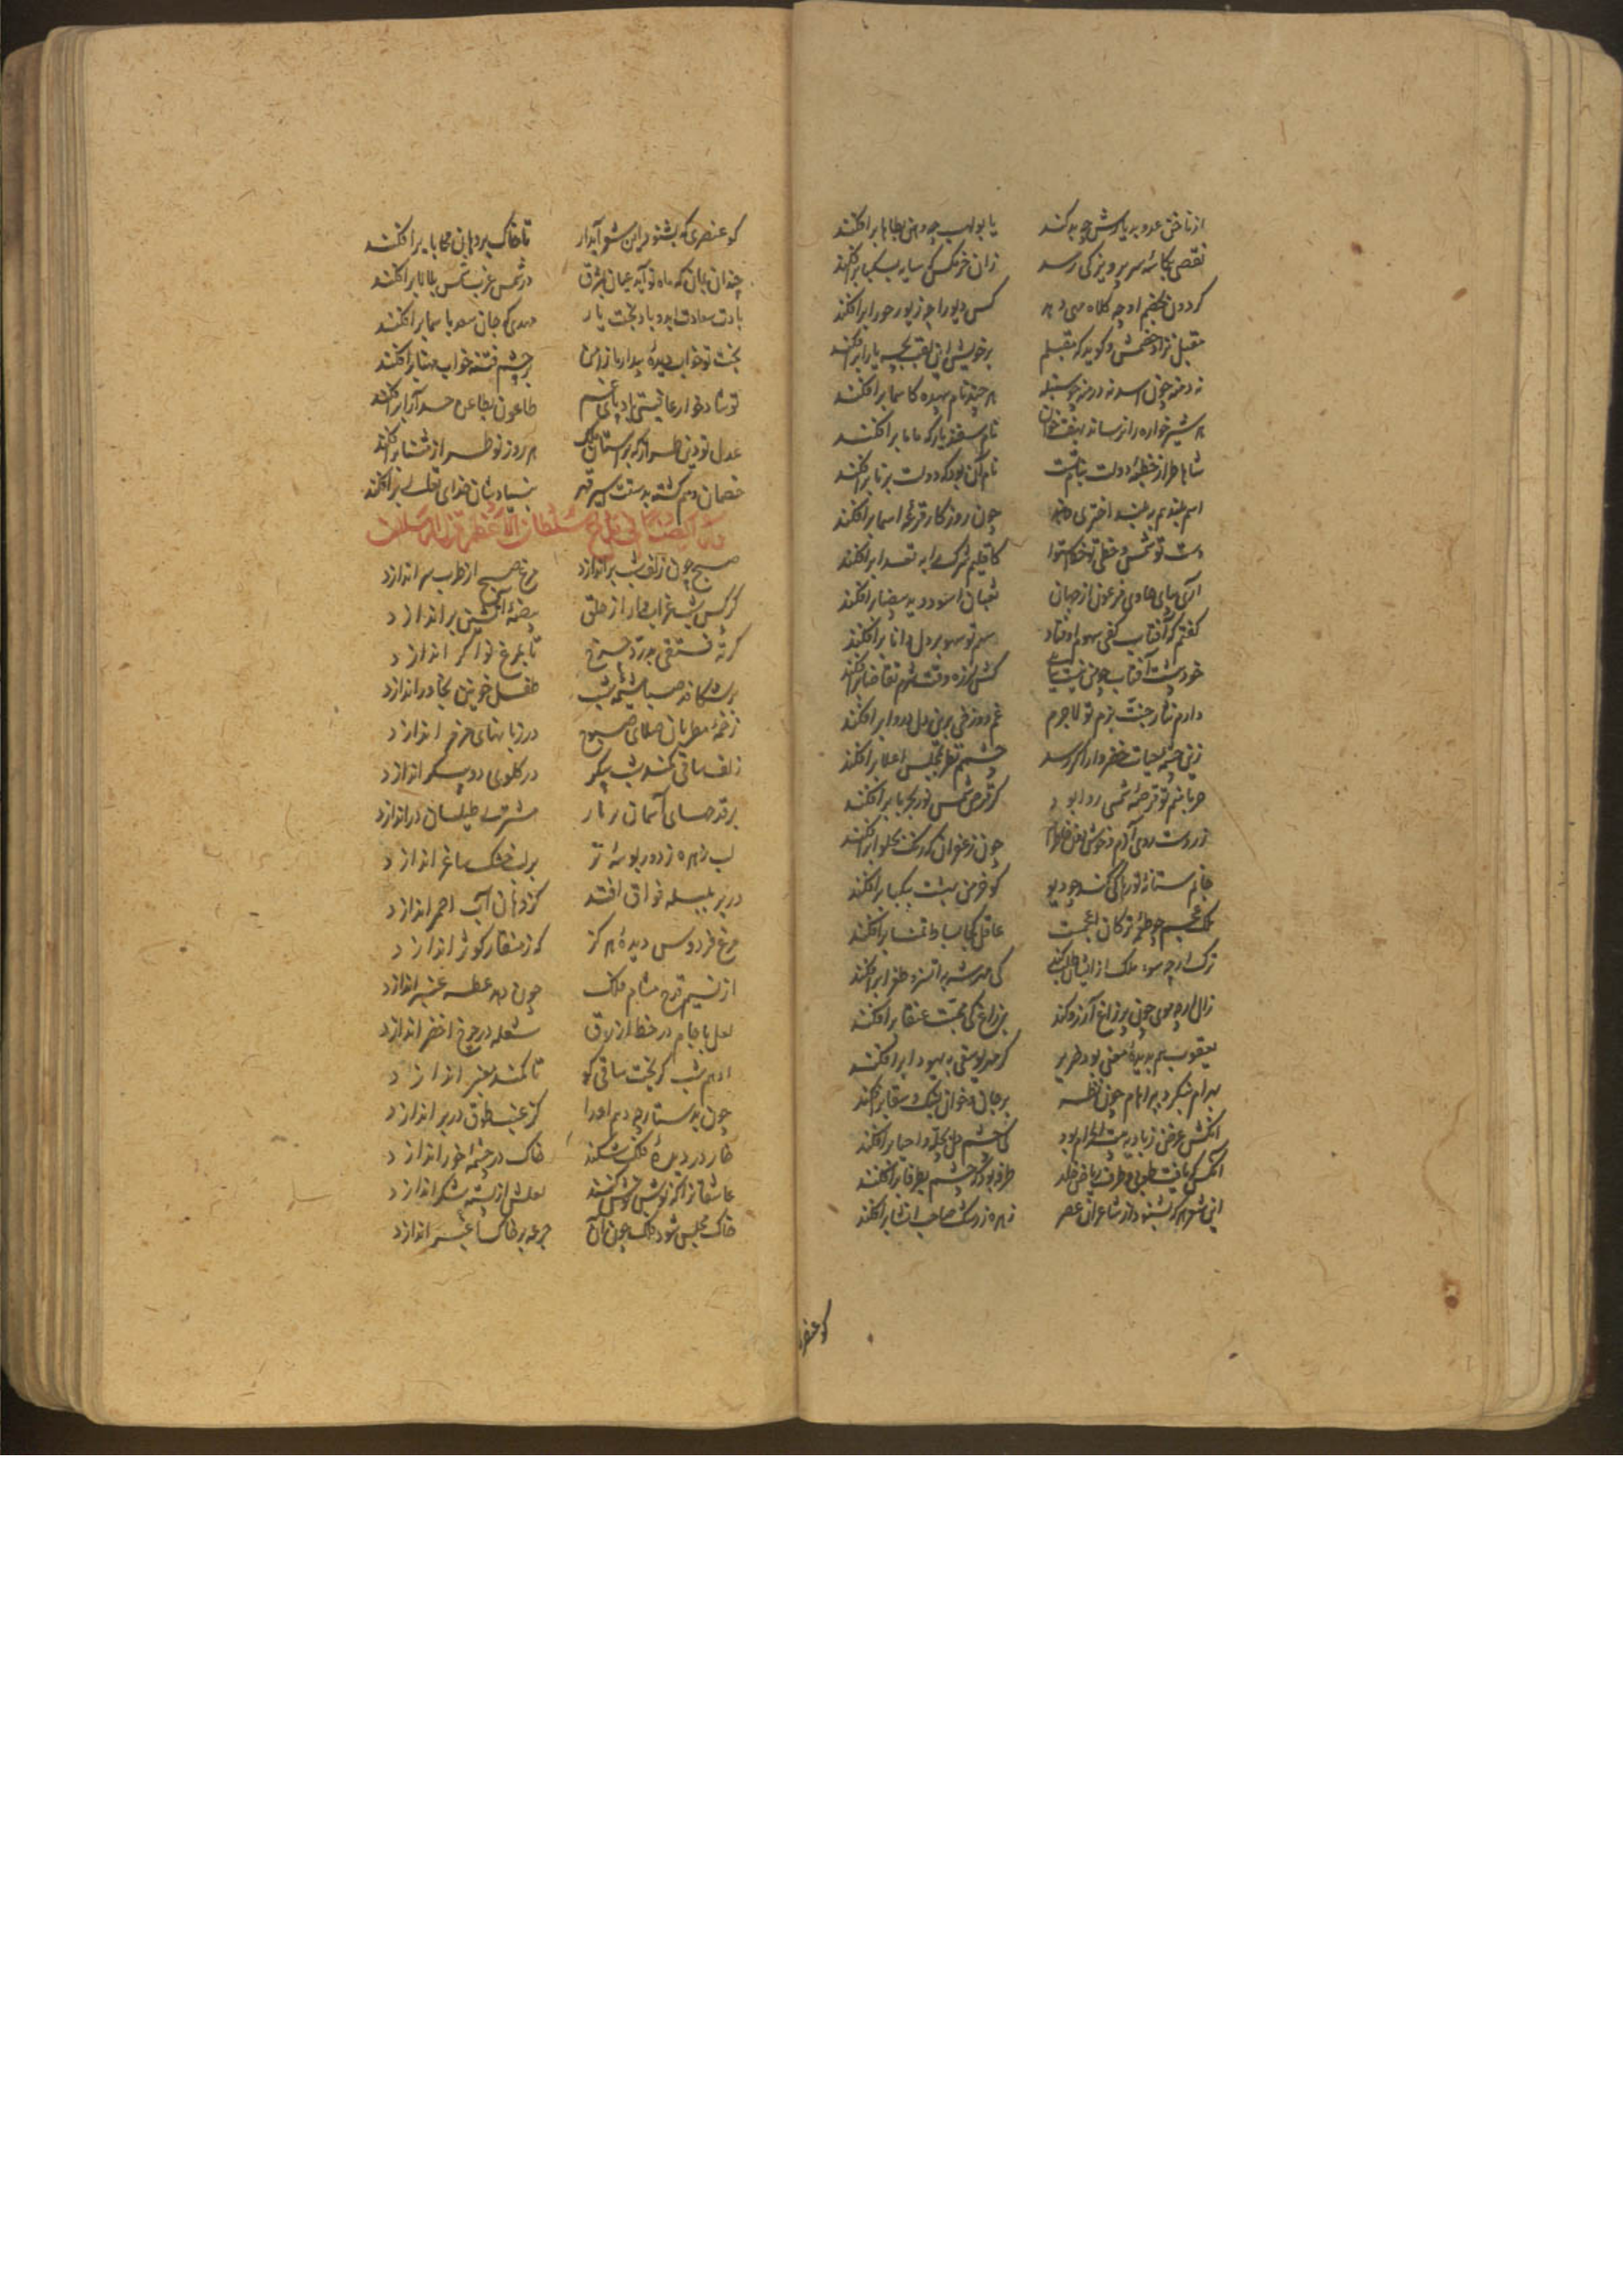 از ناخن عدو به یارش چه بد کند یا بولهب چه دهن بطاها برافکند
نقصی بکاسهٔ سر پرویز کی رسد زان خرمگس که سایه بسکبا برافکند
گردون بخصم او چه کلاه مهی دهد کس دیو را چه زیور حورا برافکند
مقبل نژاد خصمش و گوید که مقبلم بر خویشتن لقب بچه یارا برافکند
نه دمنه چون اسد نه درمنه چو سنبله هر چند نام بیهده کاسما برافکند
هر شیرخواره را نرساند بهفت خوان نام سفندیار که ماما برافکند
شاها طراز خطبهٔ دولت بنام تست نام آن بود که دولت برنا برافکند
اسم بلند هم به بلند اختری دهد چون روزگار قرعهٔ اسما برافکند
دست تو شمس و خطی تو خط استوا کاقلیم شرک را به تعدا برافکند
آری بهای هاوی فرعون از جهان ثعبان اسود و ید بیضا برافکند
گفتم که آفتاب کفی سهوم اوفتاد سهم تو سهو بر دل دانا برافکند
خود دست آفتاب چونی نیست کش لرزه وقت شرم تقاضا برافکند
دارم نثار جنت بزم تو لاجرم غم دوزخی برین دل دروا برافکند
زین چشمهٔ حیات خضروار اگر رسد چشمم نظر بمجلس اعلا برافکند
حربا منم تو قرصهٔ شمسی روا بود گر قرص شمس نور بحربا برافکند
زردست روی آزم و خوش چون زعفران که رنگ بحلوا برافکند
جانم ستانهٔ تو رها کی کند چو دیو کو خرمن بهشت بنکبا برافکند
ملک عجم چو طعمهٔ ترکان اعجمیست عاقل کجا بساط تمنا برافکند
زال ارچه موی چون پر زاغ آرزو کند بر زاغ کی محبت عنقا برافکند
یعقوب هم بدیدهٔ معنی بود ضریر گر مهر یوسفی به یهودا برافکند
بهرام ننگرد ببراهام چون نظر بر جان و خوان لنبک سقا برافکند
آنکش غرض ز بادیه بیت الحرام بود کی چشم دل بحله و احیا برافکند
آنکس که یافت طوبی و طرف ریاض خلد طرفه بود که چشم بطرفا برافکند
این شعر هر که بشنود از شاعران عصر زهره ز رشک صاحب انشا برافکند
کو عنصری
کو عنصری که بشنود این شعر آبدار تا خاک بر دهان مجابا برافکند
چندان بمان که ماه نو آید عیان ز شرق در شمس غرب شمس ببالا برافکند
بادت سعادت ابد و با تو بخت یار مهدی که جان سعد باسما برافکند
بخت تو خواب دیدهٔ بیدار تا ز امن بر چشم فتنه خواب مهنا برافکند
تو شادخوار عافیتی طاعون بطاعن حسد آرا برافکند
عدل تو دین طراز که بر آستان ملک هر روز نو طراز مثنا برافکند
خصمان دهم گشته بدست سپهر قهر بنیادشان خدای تعالی برافکند
وله ایضاً فی مدح سلطان الاعظم قزل ارسلان
صبح چون زلف شب براندازد مرغ صبح از طرب سر اندازد
کرکس شب غراب وار از حلق بیضهٔ آتشین براندازد
کرتهٔ فستقی بدرد چرخ تا بمرغ نواگر اندازد
بر شکافد صبا مشیمهٔ شب طفل خونین بخاور اندازد
زخمهٔ مطربان صلای صبوح در زبانهای مزهر اندازد
زلف ساقی کمند شب پیکر در گلوی دو پیکر اندازد
بر قدحهای آسمان زنار مشتری طیلسان دراندازد
لب زهره ز دور بوسهٔ تر بر لب خشک ساغر اندازد
در بر بلبله فواق افتد کز دهان آب احمر اندازد
مرغ فردوس دیدهٔ هرگز که ز منقار کوثر اندازد
از نسیم قدح مشام فلک چون دهد عطسه عنبر اندازد
لعل با جام در خط ازرق شعله در چرخ اخضر اندازد
ادهم شب گریخت ساقی کو تا کمند معنبر اندازد
چون به دستارچه دهم او را کز غبب طوق در بر اندازد
خار در دیدهٔ فلک شکند خاک در چشمهٔ خور اندازد
عاشقانرا که نوش نوش کنند لعلش از پسته شکر اندازد
خاک مجلس شود فلک چون آن جرعه بر خاک اغبر اندازد